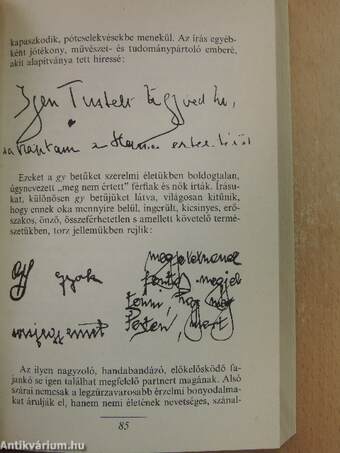 kapaszkodik, pótcselekvésekbe menekül. Az írás egyéb-
ként jótékony, művészet- és tudománypártoló emberé,
akit alapítványa tett híressé:
Igen Tisztelt Ügyved
Ezeket a gy betűket szerelmi életükben boldogtalan,
úgynevezett „meg nem értett" férfiak és nők írták. Írásu-
kat, különösen gy betűjüket látva, világosan kitűnik,
hogy ennek oka mennyire belül, ingerült, kicsinyes, erő-
szakos, önző, összeférhetetlen s amellett követelő termé-
szetükben, torz jellemükben rejlik:
gy gyak
Az ilyen nagyzoló, handabandázó, előkelősködő fa-
jankó se igen találhat megfelelő partnert magának. Alsó
szárai nemcsak a legzűrzavarosabb érzelmi bonyodalma-
kat árulják el, hanem nemi életének nevetséges, szánal-
85
Antikvárium.hu